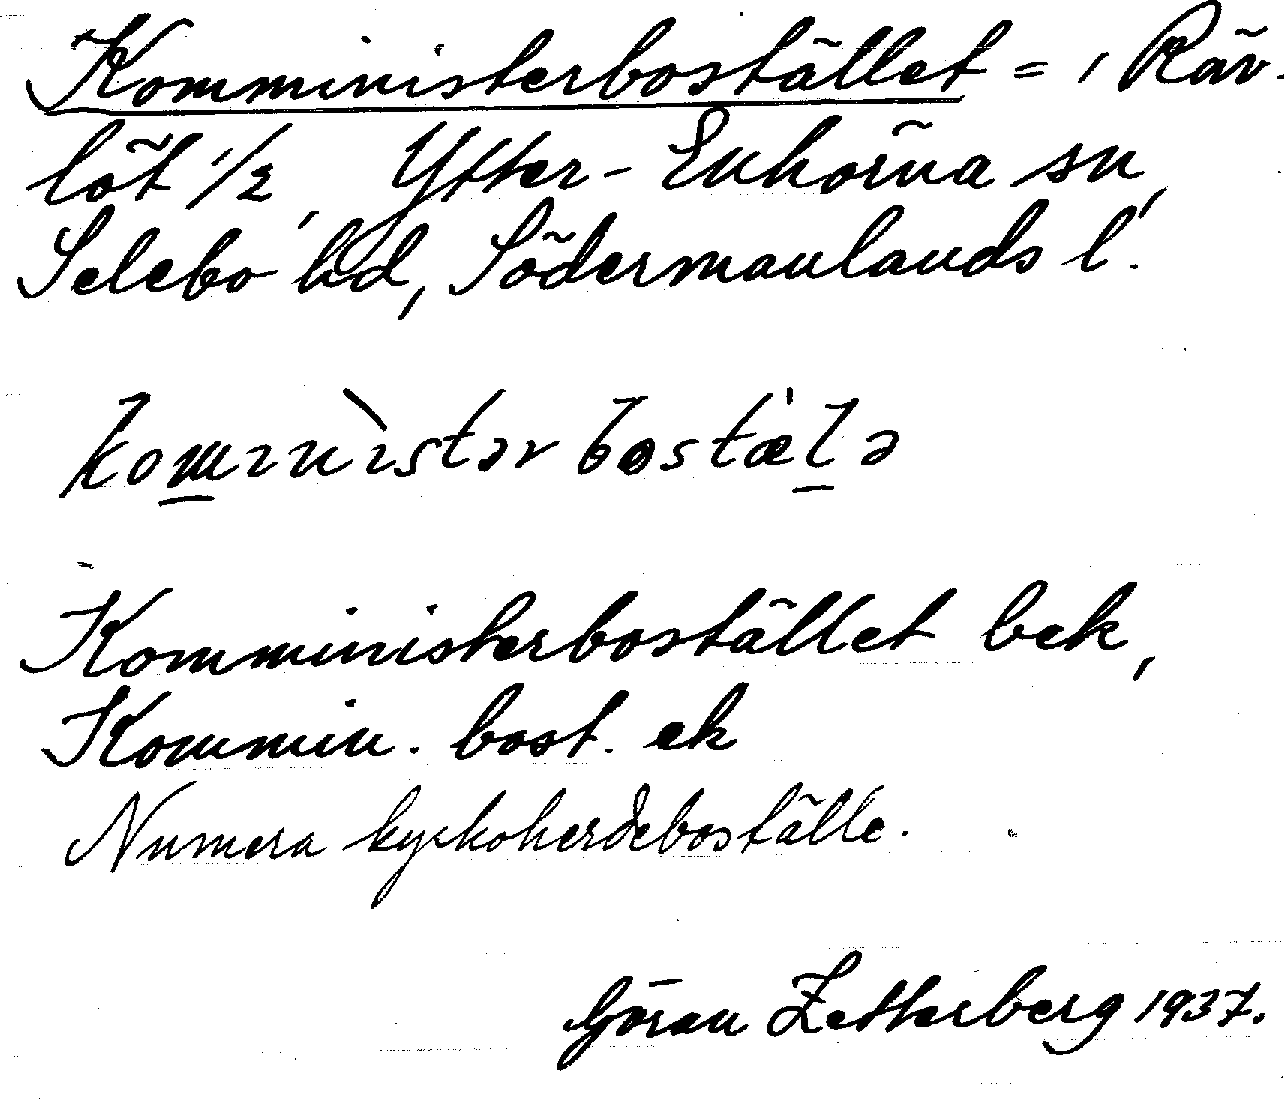 Komministerbostället = 1 Räv-
löt 1/2, Ytter-Enhörna sn,
Selebo hd, Södermanlands l.
komìnistər bostä̀lə
Komministerbostället bek,
Kommin. bost. ek
Numera kyrkoherdeboställe.
Göran Zetterberg 1937.